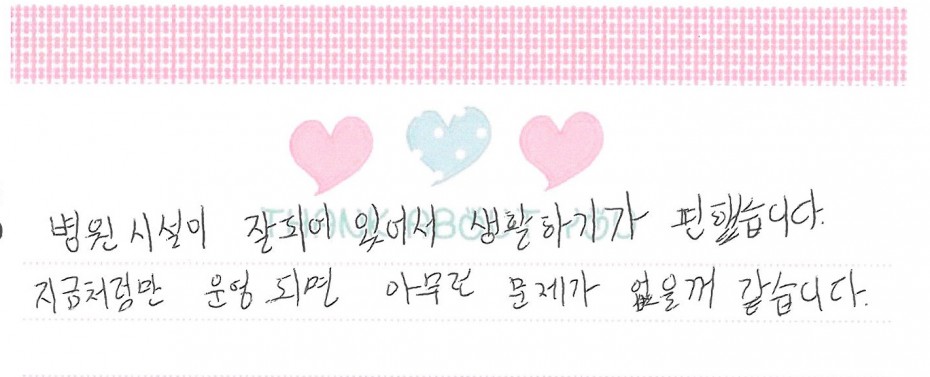 THANK ABOUT YOU
병원 시설이 잘되어 있어서 생활하기가 편했습니다.
지금처럼만 운영 되면 아무런 문제가 없을꺼 같습니다.